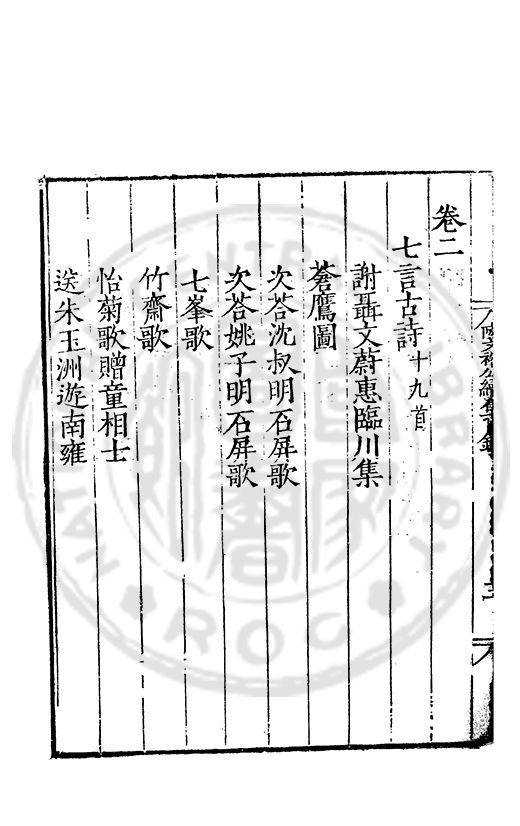 卷二
七言古詩十九首
謝聶文蔚惠臨川集
蒼鷹圖
次荅沈叔明石屏歌
次荅姚子明石屏歌
七峯歌
竹齋歌
怡菊歌贈童相士
送朱玉洲遊南雍